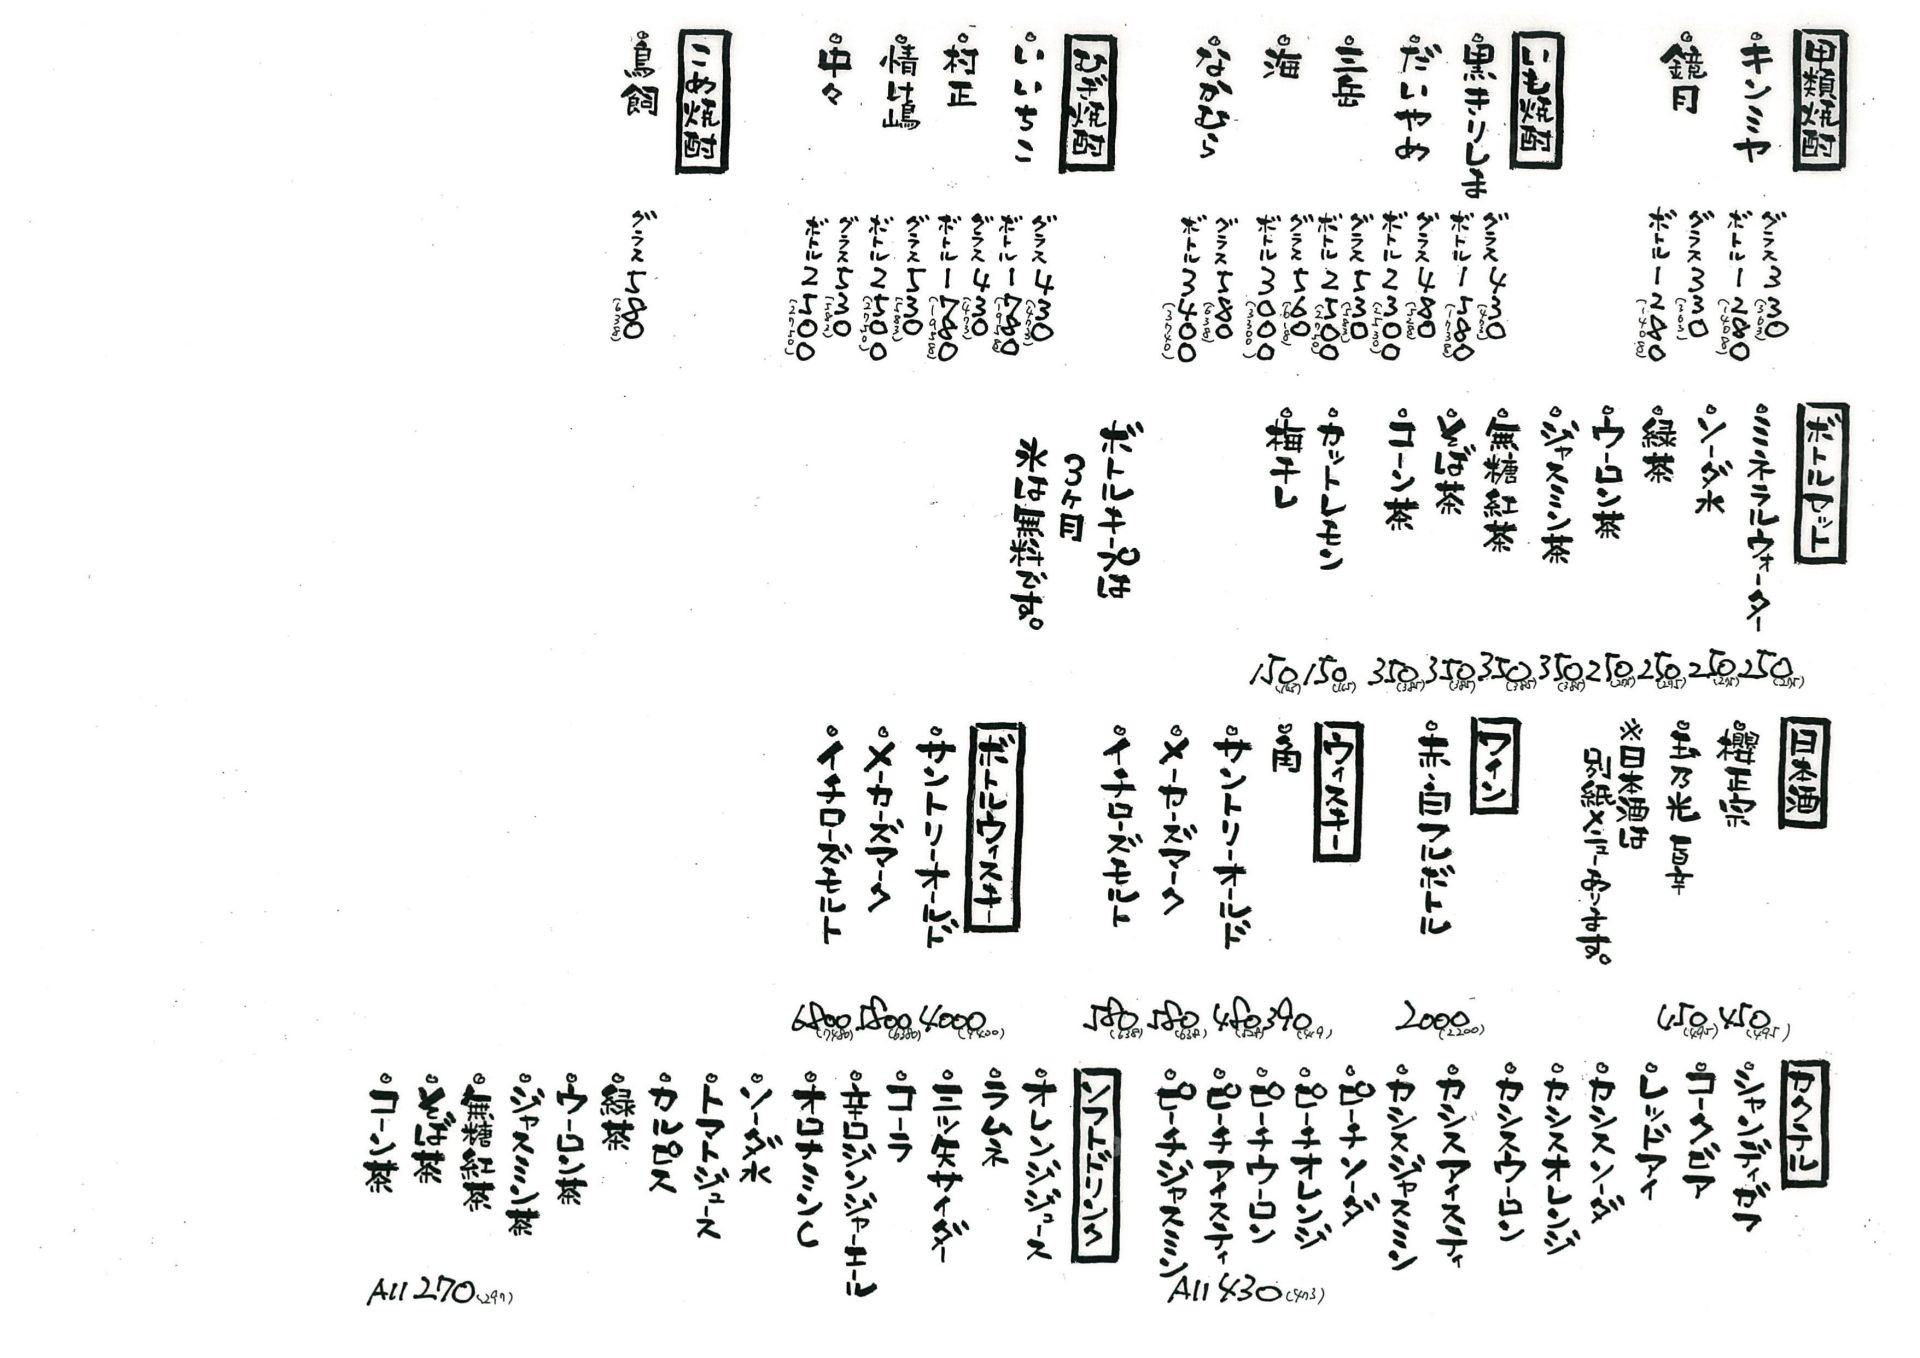 甲類焼酎
キンミヤ
グラス330(363)
ボトル1280(1408)
鏡月
グラス330(363)
ボトル1280(1408)
いも焼酎
黒きりしま
グラス430(473)
ボトル1580(1738)
だいやめ
グラス480(528)
ボトル2300(2530)
三岳
グラス530(583)
ボトル2500(2750)
海
グラス560(616)
ボトル3000(3300)
なかむら
グラス580(638)
ボトル3400(3740)
むぎ焼酎
いいちこ
グラス430(473)
ボトル1780(1958)
村正
グラス430(473)
ボトル1780(1958)
情け嶋
グラス530(583)
ボトル2500(2750)
中々
グラス530(583)
ボトル2500(2750)
こめ焼酎
鳥飼
グラス580(638)
ボトルセット
ミネラルウォーター 250(275)
ソーダ水 250(275)
緑茶 250(275)
ウーロン茶 250(275)
ジャスミン茶 350(385)
無糖紅茶 350(385)
そば茶 350(385)
コーン茶 350(385)
カットレモン 150(165)
梅干し 150(165)
ボトルキープは
3ヶ月
氷は無料です。
日本酒
櫻正宗 450(495)
玉乃光 旨辛 450(495)
※日本酒は
別紙メニューあります。
ワイン
赤・白フルボトル 2000(2200)
ウィスキー
角 390(429)
サントリーオールド 480(528)
メーカーズマーク 580(638)
イチローズモルト 580(638)
ボトルウィスキー
サントリーオールド 4000(4400)
メーカーズマーク 5800(6380)
イチローズモルト 6800(7480)
カクテル
シャンディガフ
コークビア
レッドアイ
カシスソーダ
カシスオレンジ
カシスウーロン
カシスアイスティ
カシスジャスミン
ピーチソーダ
ピーチオレンジ
ピーチウーロン
ピーチアイスティ
ピーチジャスミン
All 430(473)
ソフトドリンク
オレンジジュース
ラムネ
三ツ矢サイダー
コーラ
辛口ジンジャーエール
オロナミンC
ソーダ水
トマトジュース
カルピス
緑茶
ウーロン茶
ジャスミン茶
無糖紅茶
そば茶
コーン茶
All 270(297)